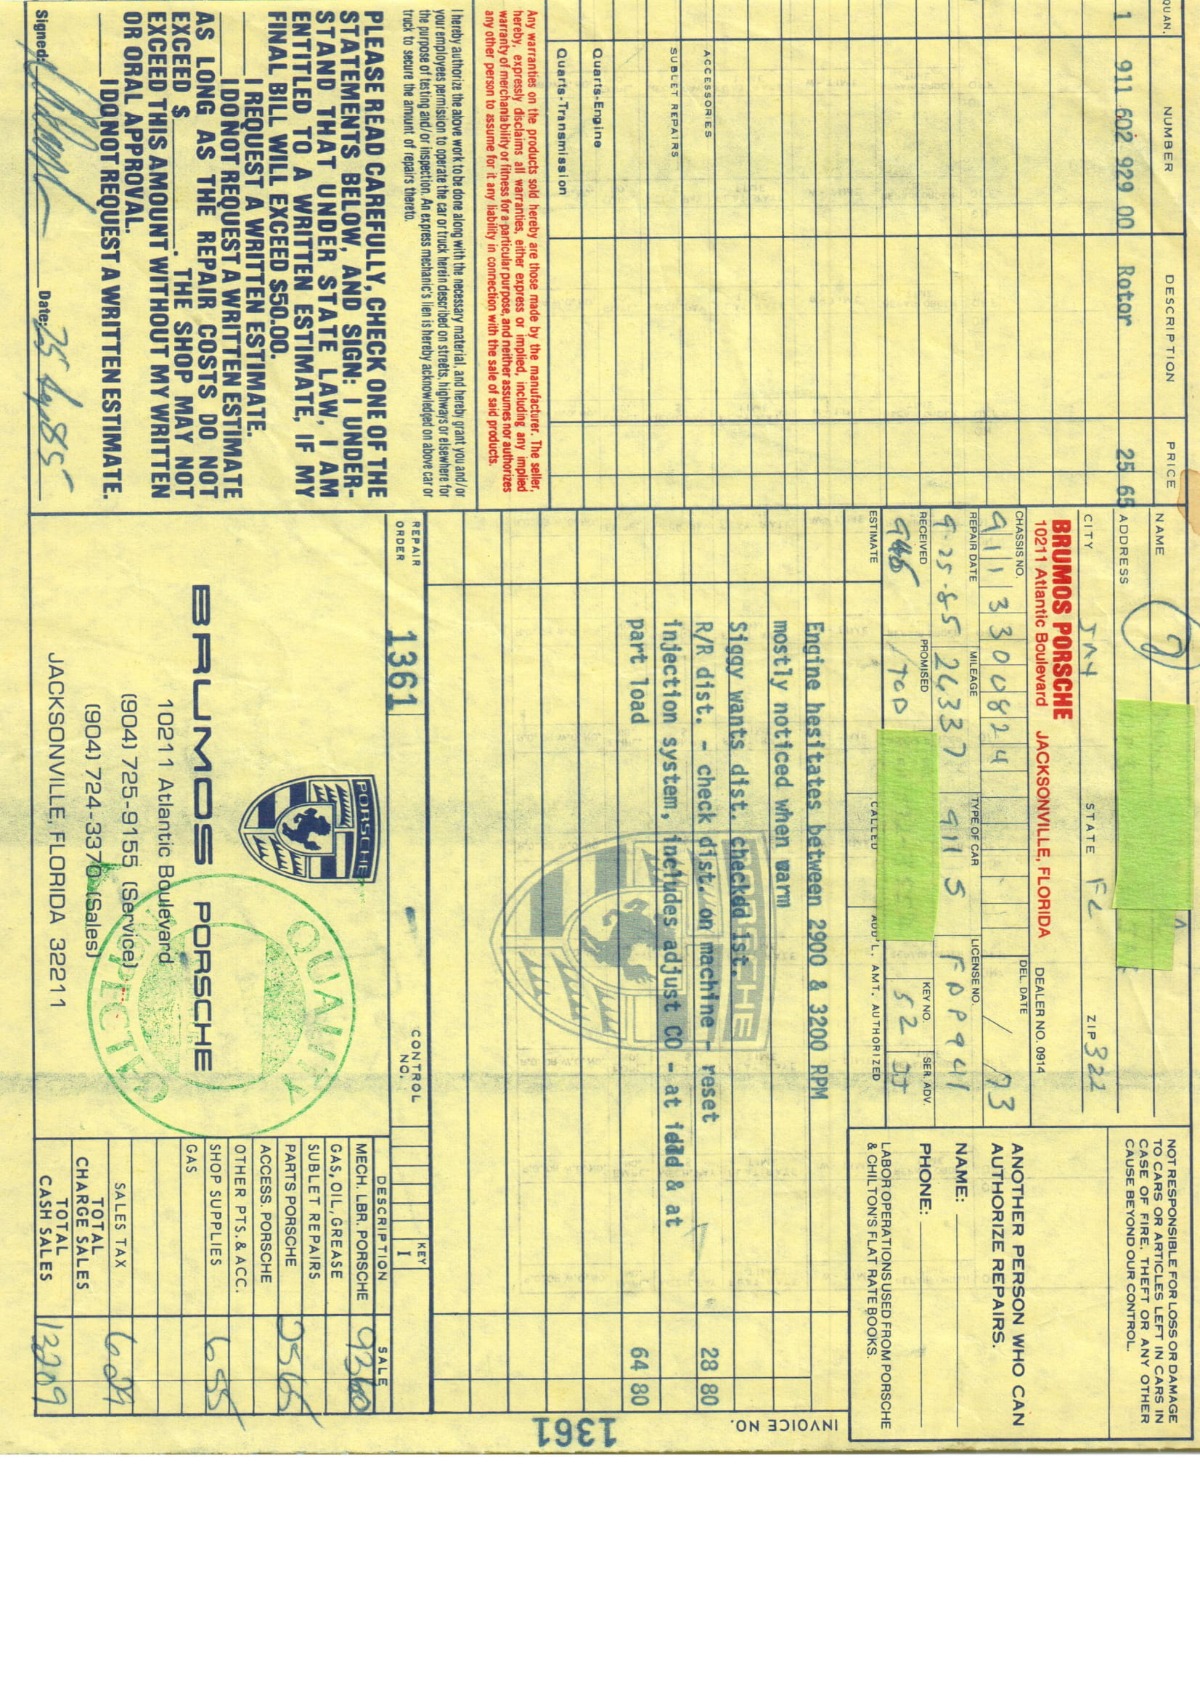 QUAN. NUMBER DESCRIPTION PRICE
1 911 602 929 00 Rotor 25 65
ACCESSORIES
SUBLET REPAIRS
Quarts-Engine
Quarts-Transmission
Any warranties on the products sold hereby are those made by the manufacturer. The seller,
hereby, expressly disclaims all warranties, either express or implied, including any implied
warranty of merchantability or fitness for a particular purpose, and neither assumes nor authorizes
any other person to assume for it any liability in connection with the sale of said products.
I hereby authorize the above work to be done along with the necessary material, and hereby grant you and/or
your employees permission to operate the car or truck herein described on streets, highways or elsewhere for
the purpose of testing and/or inspection. An express mechanic's lien is hereby acknowledged on above car or
truck to secure the amount of repairs thereto.
PLEASE READ CAREFULLY, CHECK ONE OF THE
STATEMENTS BELOW, AND SIGN: I UNDER-
STAND THAT UNDER STATE LAW, I AM
ENTITLED TO A WRITTEN ESTIMATE, IF MY
FINAL BILL WILL EXCEED $50.00.
____I REQUEST A WRITTEN ESTIMATE.
____I DO NOT REQUEST A WRITTEN ESTIMATE
AS LONG AS THE REPAIR COSTS DO NOT
EXCEED $________. THE SHOP MAY NOT
EXCEED THIS AMOUNT WITHOUT MY WRITTEN
OR ORAL APPROVAL.
____I DO NOT REQUEST A WRITTEN ESTIMATE.
Signed: Date: 25 Sep 85
NAME
ADDRESS
CITY JAX STATE FL ZIP 322
BRUMOS PORSCHE JACKSONVILLE, FLORIDA DEALER NO. 0914
10211 Atlantic Boulevard
CHASSIS NO. DEL. DATE
911 3300824 / 73
REPAIR DATE MILEAGE TYPE OF CAR LICENSE NO.
9-25-85 24337 911 S FDP941
RECEIVED PROMISED KEY NO. SER. ADV.
TCD 52 JJ
ESTIMATE CALLED ADD'L. AMT. AUTHORIZED
NOT RESPONSIBLE FOR LOSS OR DAMAGE
TO CARS OR ARTICLES LEFT IN CARS IN
CASE OF FIRE, THEFT OR ANY OTHER
CAUSE BEYOND OUR CONTROL.
ANOTHER PERSON WHO CAN
AUTHORIZE REPAIRS.
NAME:
PHONE:
LABOR OPERATIONS USED FROM PORSCHE
& CHILTON'S FLAT RATE BOOKS.
INVOICE NO. 1361
Engine hesitates between 2900 & 3200 RPM
mostly noticed when warm
Siggy wants dist. checked 1st.
R/R dist. - check dist. on machine - reset 28 80
injection system, includes adjust CO - at idle & at
part load 64 80
PORSCHE
REPAIR ORDER 1361
CONTROL NO.
KEY
I
PORSCHE
BRUMOS PORSCHE
10211 Atlantic Boulevard
(904) 725-9155 (Service)
(904) 724-3370 (Sales)
JACKSONVILLE, FLORIDA 32211
QUALITY
INSPECTION
DESCRIPTION SALE
MECH. LBR. PORSCHE 93 60
GAS, OIL, GREASE
SUBLET REPAIRS
PARTS PORSCHE 25 65
ACCESS. PORSCHE
OTHER PTS. & ACC.
SHOP SUPPLIES 6 55
GAS
SALES TAX 6 29
TOTAL CHARGE SALES
TOTAL CASH SALES 132 09